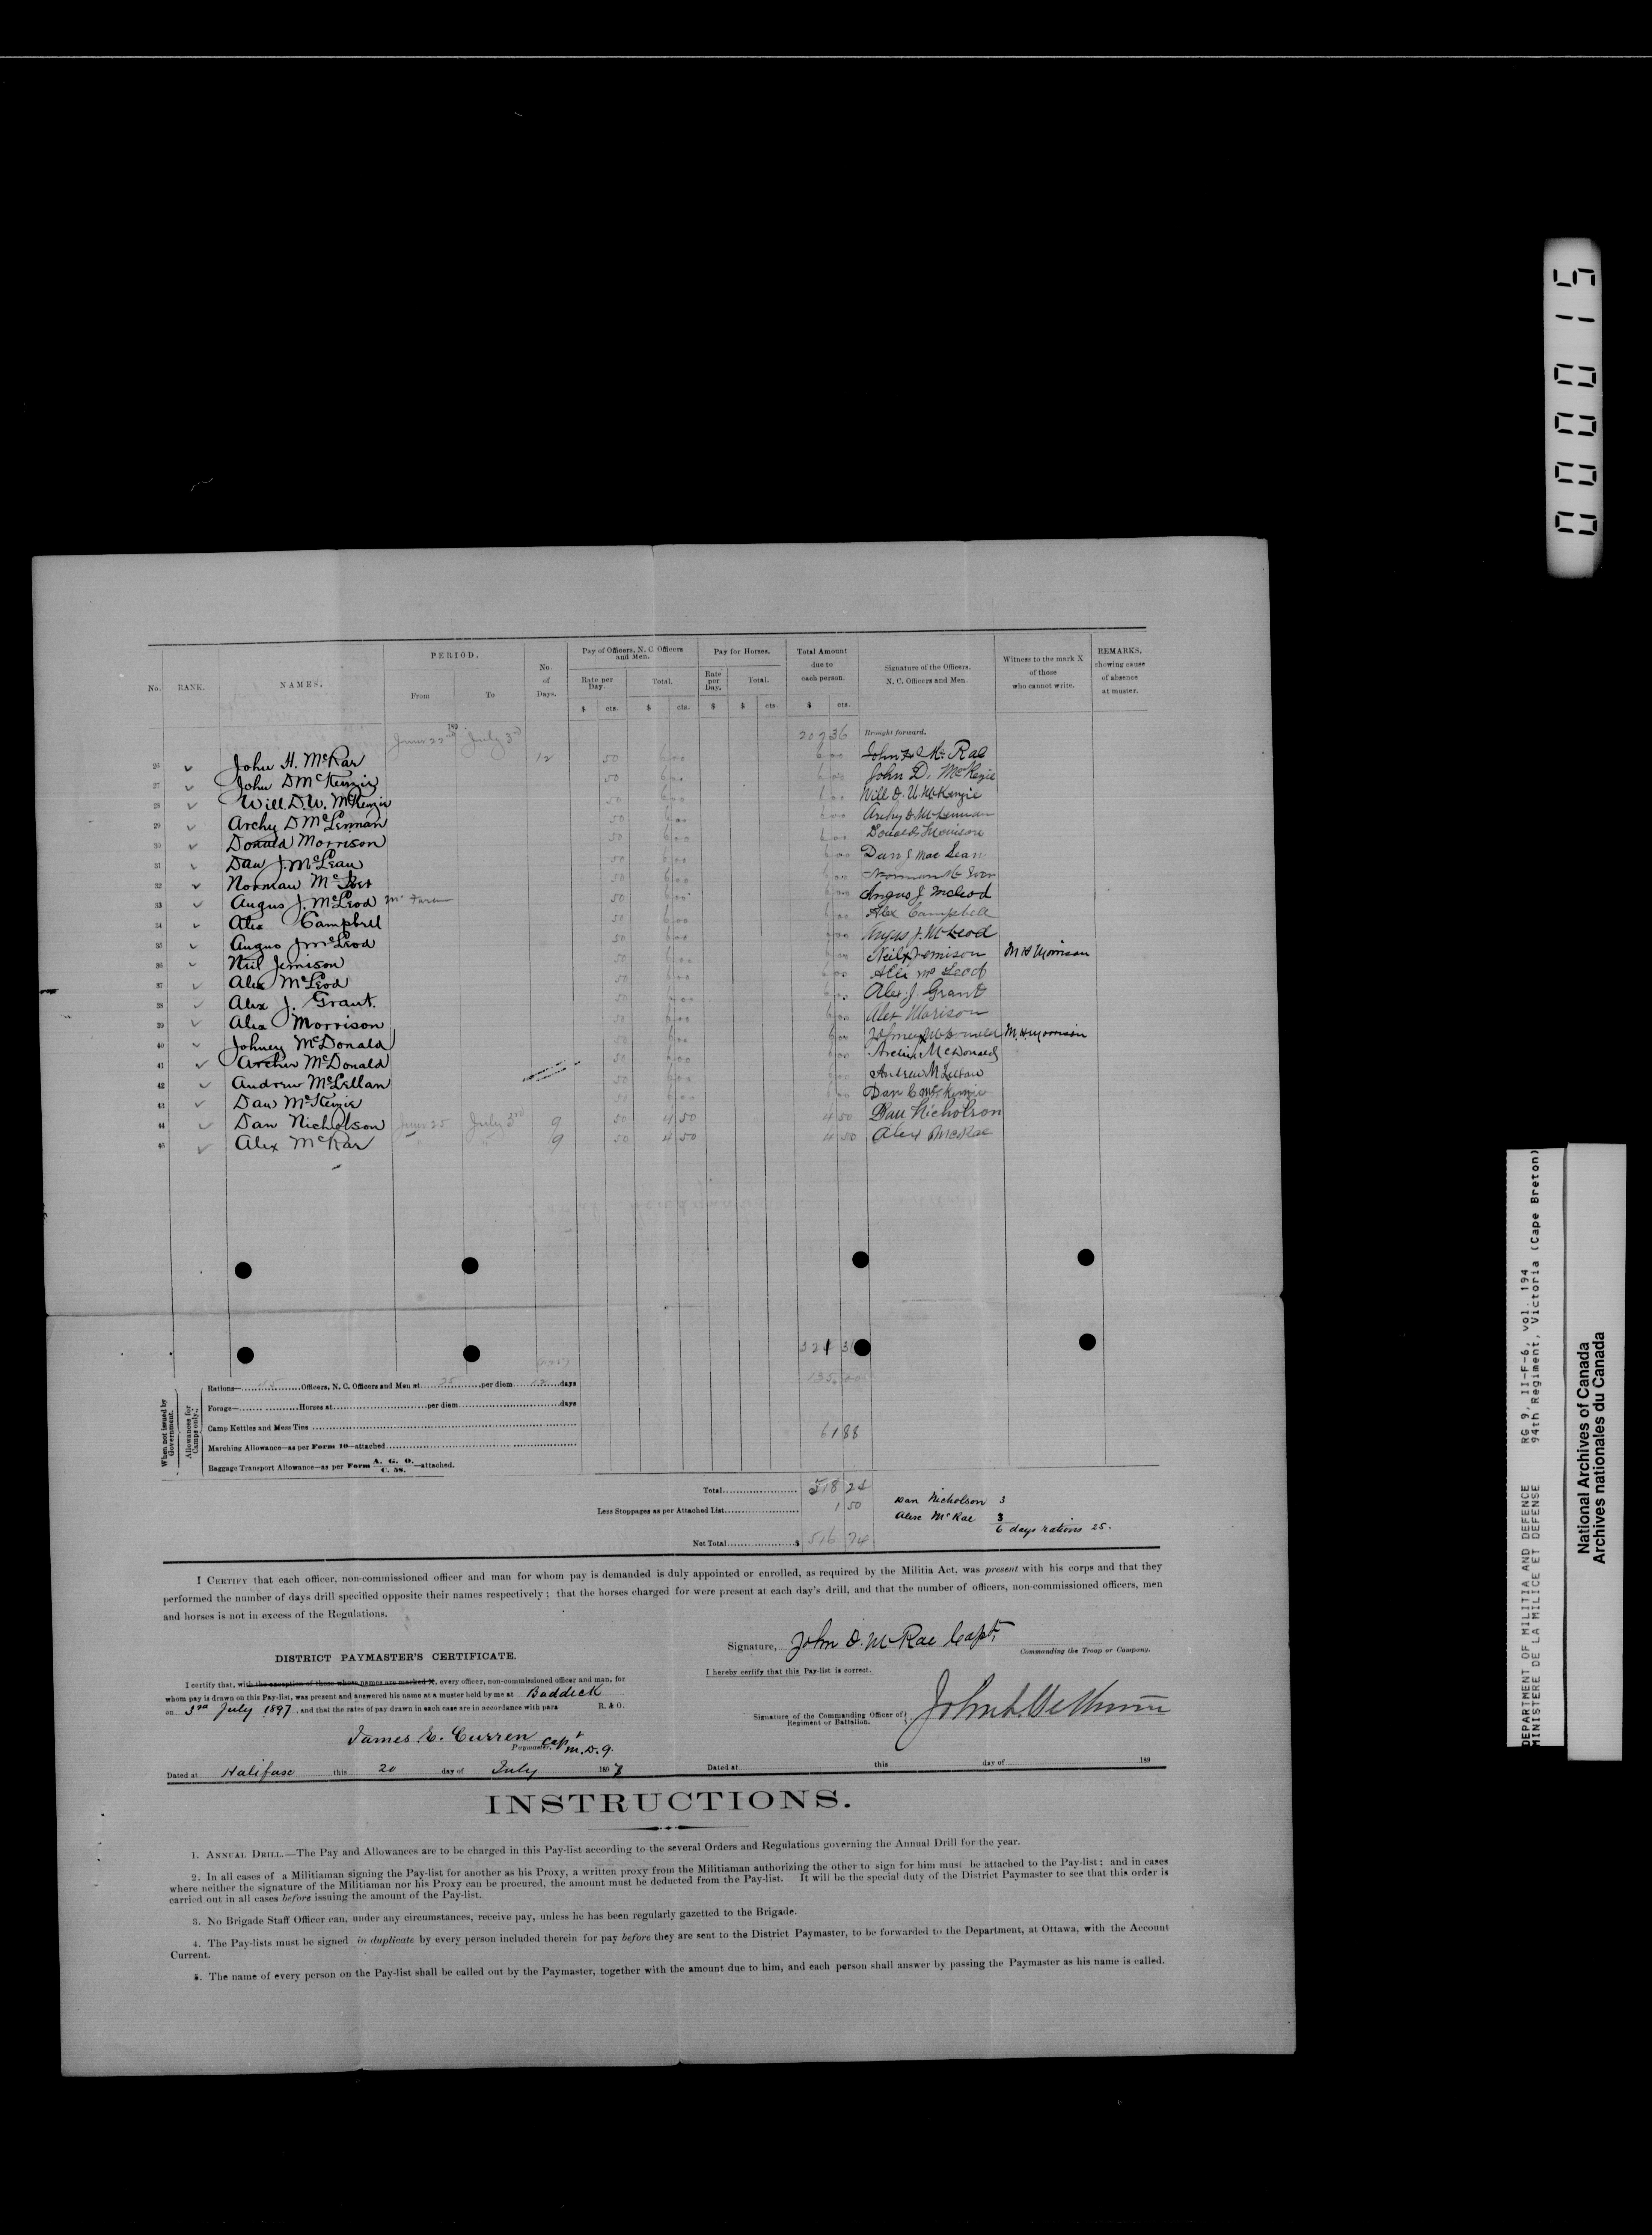 No. RANK. NAMES. PERIOD. From To No. of Days. Pay of Officers, N. C. Officers and Men. Rate per Day. Total. $ cts. $ cts. Pay for Horses. Rate per Day. Total. $ $ cts. Total Amount due to each person. $ cts. Signature of the Officers, N. C. Officers and Men. Witness to the mark X of those who cannot write. REMARKS, showing cause of absence at muster.
189
June 22nd July 3rd 207 36 Brought forward.
26 ✓ John H. McRae 12 50 6 00 6 00 John H. McRae
27 ✓ John D McKenzie 50 6 00 6 00 John D. McKezie
28 ✓ Will. D. W. McKenzie 50 6 00 6 00 Will D. W. McKenzie
29 ✓ Archy D McLennan 50 6 00 6 00 Archy D. McLennan
30 ✓ Donald Morrison 50 6 00 6 00 Donald Morrison
31 ✓ Dan J. McLean 50 6 00 6 00 Dan J Mac Lean
32 ✓ Norman McIver 50 6 00 6 00 Norman Mc Iver
33 ✓ Angus J. McLeod 50 6 00 6 00 Angus J. McLeod
34 ✓ Alex Campbell 50 6 00 6 00 Alex Campbell
35 ✓ Angus J McLeod 50 6 00 6 00 Angus J. McLeod
36 ✓ Neil Jemison 50 6 00 6 00 Neil X Jemison M H Morrison
37 ✓ Alex McLeod 50 6 00 6 00 Alex Mc Leod
38 ✓ Alex J. Grant. 50 6 00 6 00 Alex. J. Grant
39 ✓ Alex Morrison 50 6 00 6 00 Alex Morison
40 ✓ Johney McDonald 50 6 00 6 00 Johney X McDonald M. H. Morrison
41 ✓ Archie McDonald 50 6 00 6 00 Archie McDonald
42 ✓ Andrew McLellan 50 6 00 6 00 Andrew
43 ✓ Dan McKenzie 50 6 00 6 00 Dan C McKenzie
44 ✓ Dan Nicholson June 25 July 3rd 9 50 4 50 4 50 Dan Nicholson
45 ✓ Alex McRae " " 9 50 4 50 4 50 Alex McRae
324 36
When not issued by Government.
Allowances for Camps only.
Rations— 45 Officers, N. C. Officers and Men at 25 per diem 12 days 135 00
Forage— Horses at per diem days
Camp Kettles and Mess Tins
Marching Allowance—as per Form 10—attached 61 88
Baggage Transport Allowance—as per Form A. G. O. C. 58. —attached.
Total 518 24
Less Stoppages as per Attached List 1 50
Net Total $ 516 74
Dan Nicholson 3
Alex McRae 3
6 days rations 25.
I CERTIFY that each officer, non-commissioned officer and man for whom pay is demanded is duly appointed or enrolled, as required by the Militia Act, was present with his corps and that they
performed the number of days drill specified opposite their names respectively; that the horses charged for were present at each day's drill, and that the number of officers, non-commissioned officers, men
and horses is not in excess of the Regulations.
Signature, John D. McRae Capt.
Commanding the Troop or Company.
DISTRICT PAYMASTER'S CERTIFICATE.
I certify that, with the exception of those whose names are marked X, every officer, non-commissioned officer and man, for
whom pay is drawn on this Pay-list, was present and answered his name at a muster held by me at Baddeck
on 3rd July 1897, and that the rates of pay drawn in each case are in accordance with para R. & O.
James E. Curren Capt
Paymaster M. D. 9.
Dated at Halifax this 20 day of July 1897
I hereby certify that this Pay-list is correct.
Signature of the Commanding Officer of Regiment or Battalion.
Dated at this day of 189
INSTRUCTIONS.
1. ANNUAL DRILL.—The Pay and Allowances are to be charged in this Pay-list according to the several Orders and Regulations governing the Annual Drill for the year.
2. In all cases of a Militiaman signing the Pay-list for another as his Proxy, a written proxy from the Militiaman authorizing the other to sign for him must be attached to the Pay-list; and in cases
where neither the signature of the Militiaman nor his Proxy can be procured, the amount must be deducted from the Pay-list. It will be the special duty of the District Paymaster to see that this order is
carried out in all cases before issuing the amount of the Pay-list.
3. No Brigade Staff Officer can, under any circumstances, receive pay, unless he has been regularly gazetted to the Brigade.
4. The Pay-lists must be signed in duplicate by every person included therein for pay before they are sent to the District Paymaster, to be forwarded to the Department, at Ottawa, with the Account
Current.
5. The name of every person on the Pay-list shall be called out by the Paymaster, together with the amount due to him, and each person shall answer by passing the Paymaster as his name is called.
000015
DEPARTMENT OF MILITIA AND DEFENCE RG 9, II-F-6, vol. 194
MINISTERE DE LA MILICE ET DEFENSE 94th Regiment, Victoria (Cape Breton)
National Archives of Canada
Archives nationales du Canada